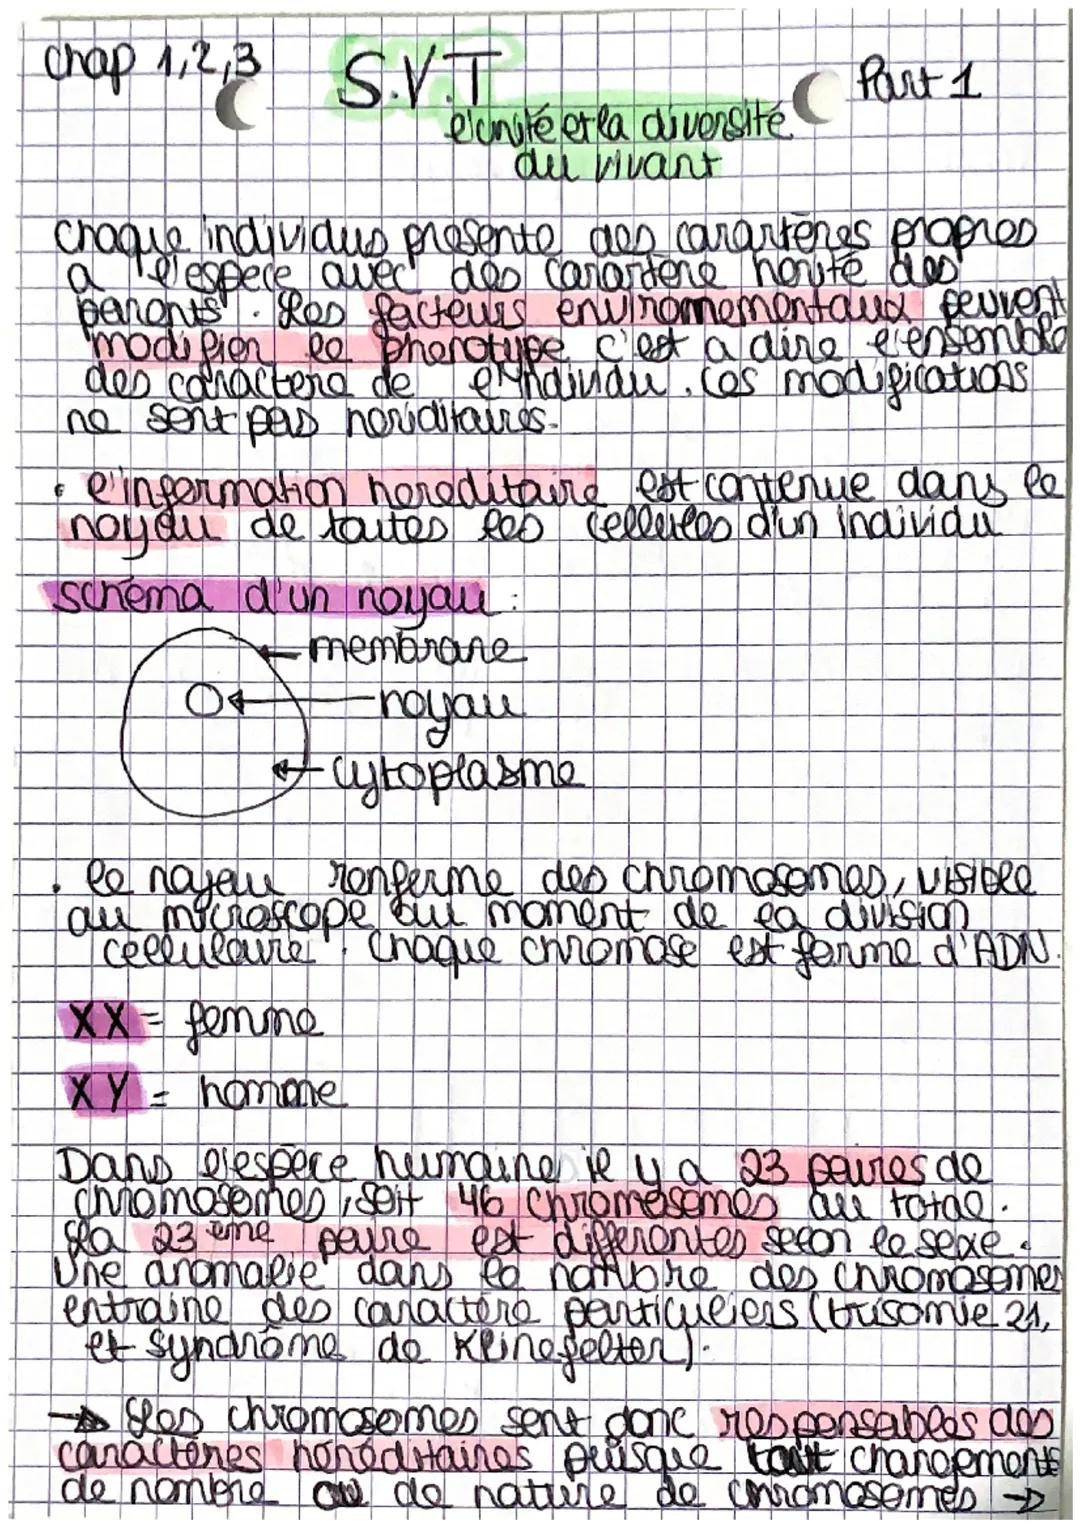 chap 1,2,3
S.V.T
Part 1
l'unité et la diversité
du vivant
chaque individus presente des carartères propres
a l'espece avec des carartère hérité des
parents. Les facteurs environnementaux peuvent
modifier le phenotype c'est a dire l'ensemble
des caractere de l'individu. Ces modifications
ne sont pas heriditaires.
• l'information hereditaire est contenue dans le
noyau de toutes les cellules d'un individu
schéma d'un noyau :
membrane
noyau
cytoplasme
• le noyau renferme des chromosomes, visible
au microscope au moment de la division
cellulaire. Chaque chromose est forme d'ADN.
XX = femme
XY = homme
Dans l'espèce humaine il y a 23 paires de
chromosomes, soit 46 chromosomes au total.
La 23 eme paire est differentes selon le sexe.
Une anomalie dans le nombre des chromosomes
entraine des caractère particuliers (trisomie 21,
et syndrôme de Klinefelter).
→ Les chromosomes sont donc responsables des
caractères héréditaires puisque tout changements
de nombre ou de nature de chromosomes →